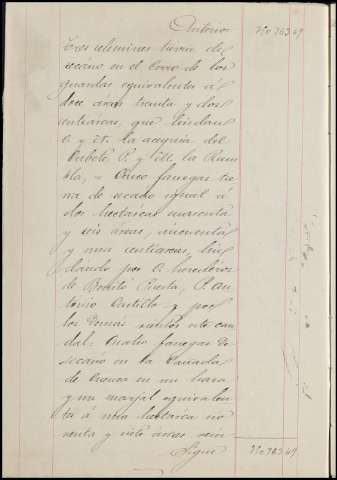 Anterior No 763.49
Tres celemines tierra de
secano en el Cerro de los
Guardas equivalentes á
doce áreas treinta y dos
centiáreas, que lindan
S. y N. la acequia del
P. y M. la Ram
bla, = Cinco fanegas tie
rra de secano igual á
dos hectáreas cuarenta
y seis áreas, cincuenta
y una centiáreas, lin
dando por S. herederos
de Benito P. An
tonio Castillo y por
los demás vientos este cau
dal; Cuatro fanegas de
secano en la Cañada
de Cuenca en un haza
y un marjal equivalen
te á una hectárea no
venta y siete áreas sein
Sigue No 763.49